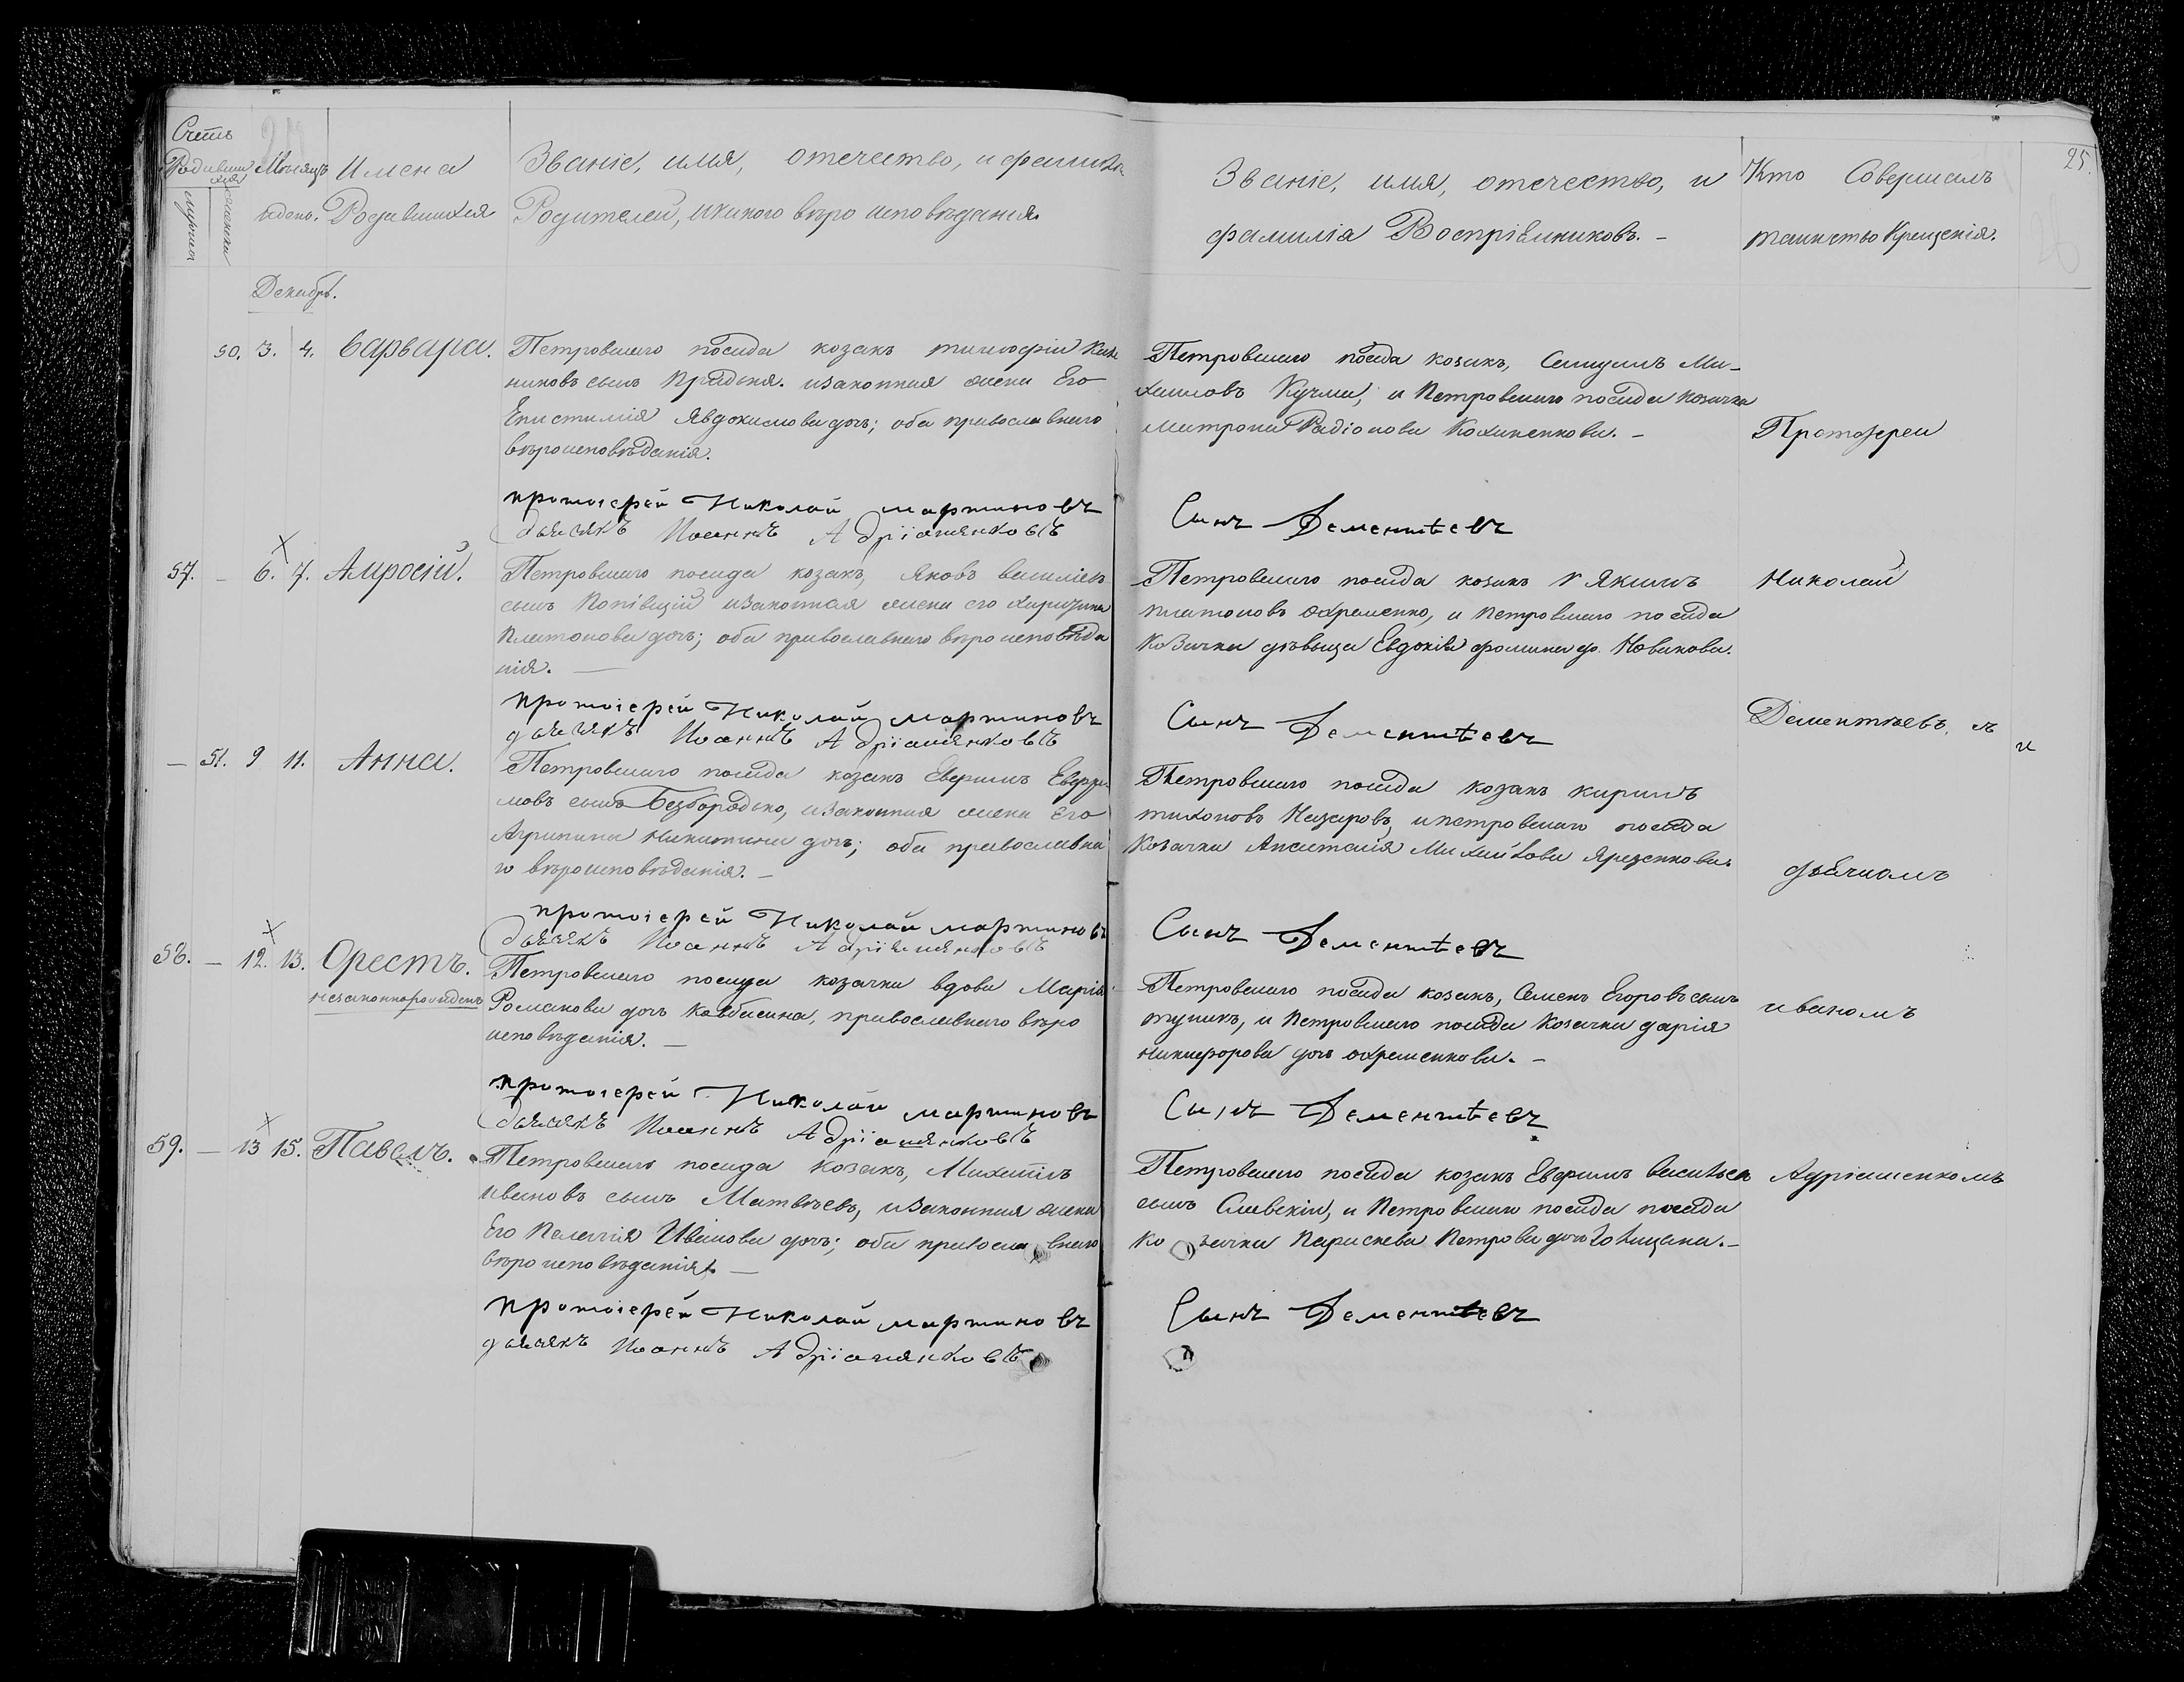 25.
Счетъ
Родивши Мѣсяцъ Имена Званіе, имя, отечество, и фамилія
хся
мужеска
женска
и день. Родившихся Родителей, и какого вѣроисповѣданія.
Званіе, имя, отечество, и Кто Совершалъ
фамилія Воспріемниковъ. – таинство Крещенія.
Декабрь.
50. 3. 4. Варвара. Петровскаго посада козакъ тимофій
никовъ сынъ Прадька. и законная жена Его
Епистимія Явдокимова дочь; оба православнаго
вѣроисповѣданія.
протоіерей Николай мартиновъ
дьячякъ Иоаннъ Адріашянковъ
Петровскаго посада козакъ, Самуилъ Ми–
хаиловъ Кучма, и Петровскаго посада козачка
матрона Радіонова Кохиненкова. –
Сынъ Дементѣевъ
Протоіереи
57. – 6. 7. Амросій. Петровскаго посада козакъ, Яковъ василіевъ
сынъ Попівщій и законная жена его харитина
Платонова дочь; оба православнаго вѣроисповѣда
нія. —
протоіерей Николай мартиновъ
дьячякъ Иоаннъ Адріашянковъ
Петровскаго посада козакъ Якимъ
платоновъ охрименко, и Петровскаго посада
козачка дѣвица Евдокія фомина до. Новикова.
Сынъ Дементѣевъ
Николай
Дементьевъ, съ
и
— 51. 9 11. Анна. Петровскаго посада козакъ Ефримъ Ефри
мовъ сынъ Безбородько, и законная жена Его
Агрипина никитина дочь; оба православна
го вѣроисповѣданія. –
протоіерей Николай мартиновъ
дьячякъ Иоаннъ Адріашянковъ
Петровскаго посада козакъ кирилъ
тихоновъ Назаровъ, и петровскаго посада
козачка Анаитасія Михайлова Ярезенкова.
Сынъ Дементѣевъ
дьячкомъ
58. – 12. 13. Орестъ. Петровскаго посада козачка вдова Марія
незаконнорожденъ Романова дочь Ковбасина, православнаго вѣро
исповѣданія. —
протоіерей Николай мартиновъ
дьячякъ Иоаннъ Адріашянковъ
Петровскаго посада козакъ, Семенъ Егоровъ сынъ
тупикъ, и Петровскаго посада Козачка дарія
никифорова дочь охрименкова. –
Сынъ Дементѣевъ
иваномъ
59. – 13 15. Павелъ. Петровскаго посада козакъ, Михаилъ
ивановъ сынъ Матвѣевъ, и законная жена
Его Пелагія Иванова дочь; оба православнаго
вѣроисповѣданія. —
протоіерей Николай мартиновъ
дьячякъ Иоаннъ Адріашянковъ
Петровскаго посада козакъ Ефримъ васильев
сынъ Славскій, и Петровскаго посада посада
козачка Параскева Петрова дочь –
Сынъ Дементѣевъ
Адріашенкомъ